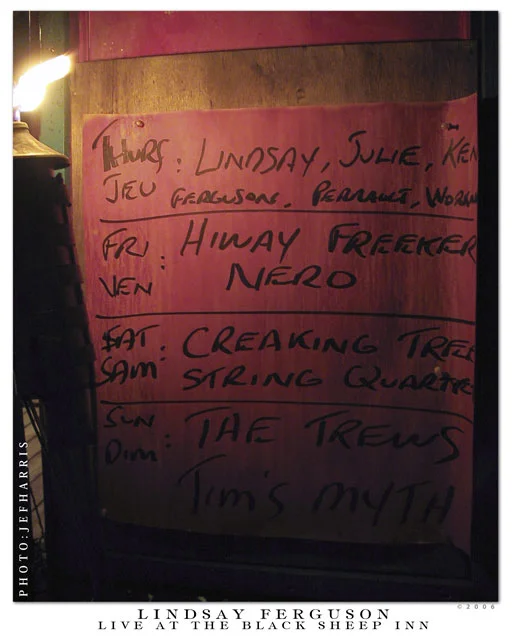 THURS : LINDSAY, JULIE, KEN
JEU FERGUSON, PERRAULT,
FRI : HIWAY FREEKER
VEN NERO
SAT : CREAKING TREE
SAM STRING QUARTE
SUN : THE TREWS
DIM
TIM'S MYTH
PHOTO:JEFHARRIS
©2006
LINDSAY FERGUSON
LIVE AT THE BLACK SHEEP INN